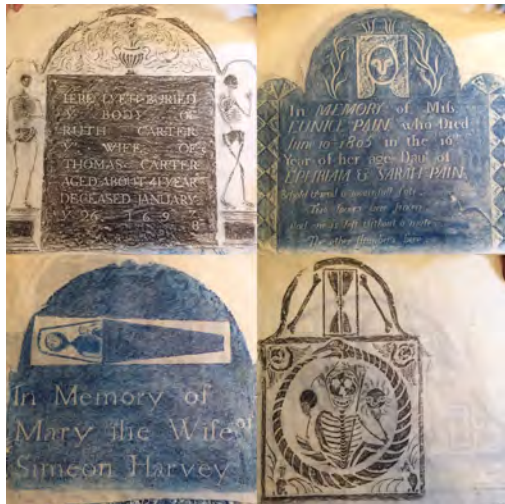 HERE LYETH BURIED
Y BODY OF
RUTH CARTER
Y WIFE OF
THOMAS CARTER
AGED ABOUT 41 YEARS
DECEASED JANUARY
Y 26 1697
8
In MEMORY of Miſs
EUNICE PAIN who Died
June 10 1805 in the 16
Year of her age Dauʳ of
EPHRIAM & SARAH PAIN
In Memory of
Mary the Wife of
Simeon Harvey